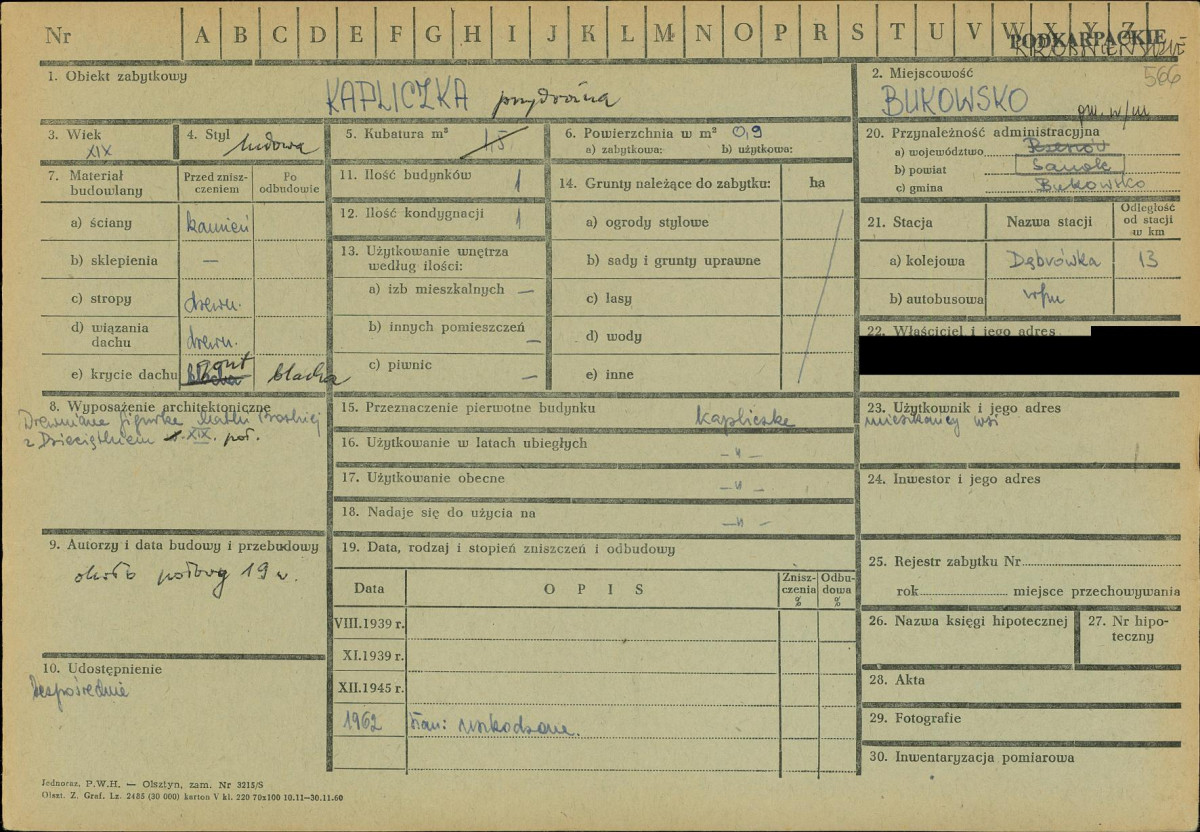 Nr A B C D E F G H I J K L M N O P R S T U V W X Y Z PODKARPACKIE
566
1. Obiekt zabytkowy
KAPLICZKA przydrożna
2. Miejscowość
BUKOWSKO
gm. w/m
3. Wiek
XIX
4. Styl
ludowa
5. Kubatura m³
15
6. Powierzchnia w m² 0,9
a) zabytkowa: b) użytkowa:
20. Przynależność administracyjna
a) województwo Rzeszów
b) powiat Sanok
c) gmina Bukowsko
7. Materiał budowlany
Przed zniszczeniem
Po odbudowie
a) ściany kamień
b) sklepienia —
c) stropy drewn.
d) wiązania dachu drewn.
e) krycie dachu blacha gont blacha
11. Ilość budynków 1
12. Ilość kondygnacji 1
13. Użytkowanie wnętrza według ilości:
a) izb mieszkalnych —
b) innych pomieszczeń —
c) piwnic —
14. Grunty należące do zabytku: ha
a) ogrody stylowe
b) sady i grunty uprawne
c) lasy
d) wody
e) inne
21. Stacja Nazwa stacji Odległość od stacji w km
a) kolejowa Dąbrówka 13
b) autobusowa w/m
22. Właściciel i jego adres
8. Wyposażenie architektoniczne
Drewniana figurka Matki Boskiej
z Dzieciątkiem XIX. poł.
15. Przeznaczenie pierwotne budynku kapliczka
16. Użytkowanie w latach ubiegłych —"—
17. Użytkowanie obecne —"—
18. Nadaje się do użycia na —"—
23. Użytkownik i jego adres
mieszkańcy wsi
24. Inwestor i jego adres
9. Autorzy i data budowy i przebudowy
około połowy 19 w.
19. Data, rodzaj i stopień zniszczeń i odbudowy
Data OPIS Zniszczenia % Odbudowa %
VIII.1939 r.
XI.1939 r.
XII.1945 r.
1962 Stan: uszkodzona.
25. Rejestr zabytku Nr
rok miejsce przechowywania
26. Nazwa księgi hipotecznej
27. Nr hipoteczny
10. Udostępnienie
bezpośrednie
28. Akta
29. Fotografie
30. Inwentaryzacja pomiarowa
Jednoraz. P.W.H. — Olsztyn, zam. Nr 3215/S
Olszt. Z. Graf. Lz. 2485 (30 000) karton V kl. 220 70x100 10.11—30.11.60